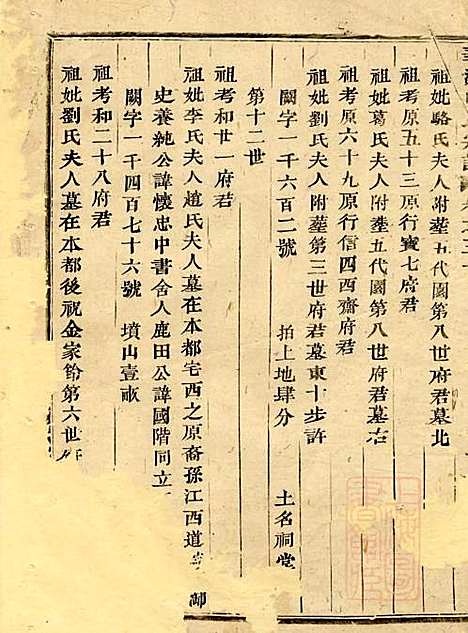 祖妣駱氏夫人附塟五代園第八世府君墓北
祖考原五十三原行寳七府君
祖妣葛氏夫人附塟五代園第八世府君墓右
祖考原六十九原行信四西齋府君
祖妣劉氏夫人附塟第三世府君墓東十步許
闕字一千六百二號 拍上地肆分 土名祠堂
第十二世
祖考和廿一府君
祖妣李氏夫人趙氏夫人墓在本都宅西之原裔孫江西道 御
史養純公諱懷忠中書舍人鹿田公諱國階同立
闕字一千四百七十六號 墳山壹畝
祖考和二十八府君
祖妣劉氏夫人墓在本都後祝金家鈴第六世